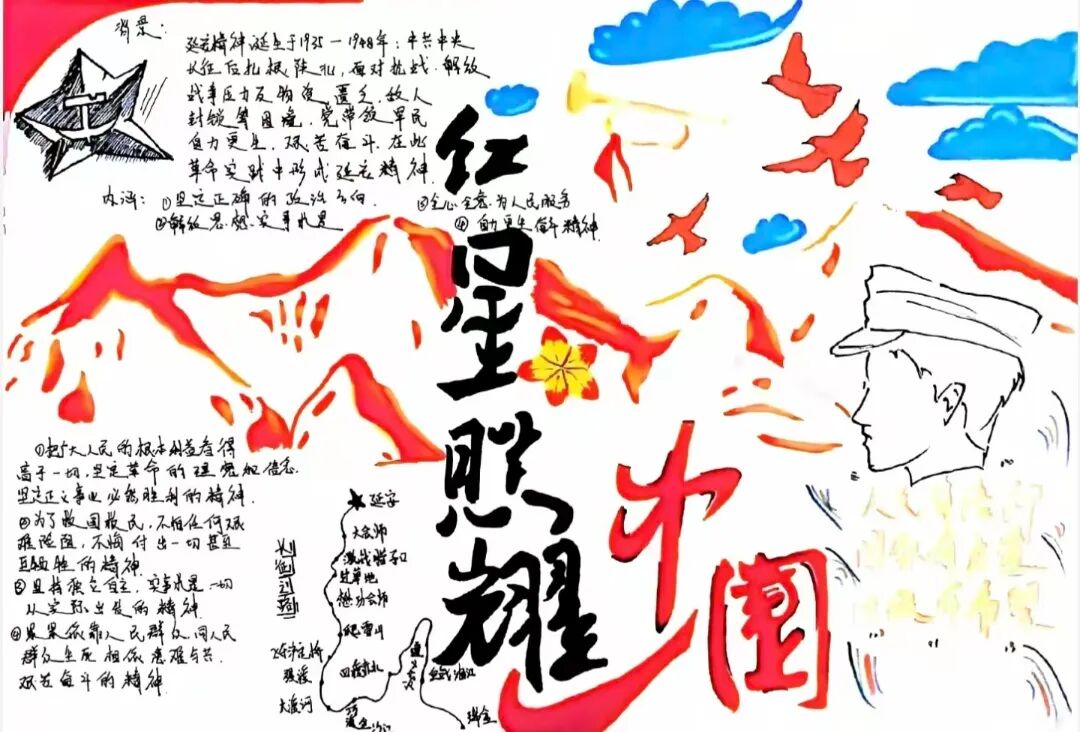 背景:
延安精神诞生于1935一1948年:中共中央
长征后扎根陕北,面对抗战.解放
战争压力及物资匮乏,敌人
封锁等困境,党带领军民
自力更生,艰苦奋斗.在此
革命实践中形成延安精神.
内涵: ①坚定正确的政治方向. ③全心全意为人民服务
②解放思想.实事求是 ④自力更生奋斗精神.
红星照耀
中国
①把广大人民的根本利益看得
高于一切,坚定革命的理想和信念.
坚定正义事业必然胜利的精神.
②为了救国救民,不怕任何艰
难险阻,不惜付出一切甚至
牺牲的精神.
③坚持独立自主,实事求是一切
从实际出发的精神.
④紧紧依靠人民群众,同人民
群众生死相依患难与共.
艰苦奋斗的精神.
长征
大会师
激战腊子口
过草地
懋功会师
爬雪山
飞夺泸定桥
强渡
大渡河
四渡赤水
瑞金